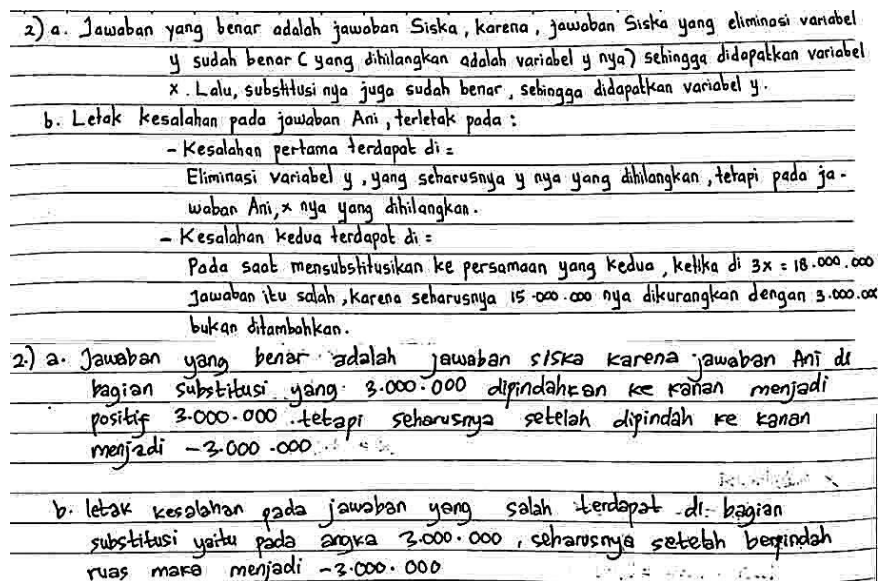 2) a. Jawaban yang benar adalah jawaban Siska, karena, jawaban Siska yang eliminasi variabel
y sudah benar ( yang dihilangkan adalah variabel y nya) sehingga didapatkan variabel
x. Lalu, substitusi nya juga sudah benar, sehingga didapatkan variabel y.
b. Letak kesalahan pada jawaban Ani, terletak pada :
- Kesalahan pertama terdapat di =
Eliminasi variabel y, yang seharusnya y nya yang dihilangkan, tetapi pada ja-
waban Ani, x nya yang dihilangkan.
- Kesalahan kedua terdapat di =
Pada saat mensubstitusikan ke persamaan yang kedua, ketika di 3x = 18.000.000
Jawaban itu salah, karena seharusnya 15.000.000 nya dikurangkan dengan 3.000.000
bukan ditambahkan.
2.) a. Jawaban yang benar adalah jawaban siska karena jawaban Ani di
bagian substitusi yang 3.000.000 dipindahkan ke kanan menjadi
positif 3.000.000 tetapi seharusnya setelah dipindah ke kanan
menjadi -3.000.000
b. letak kesalahan pada jawaban yang salah terdapat di bagian
substitusi yaitu pada angka 3.000.000, seharusnya setelah berpindah
ruas maka menjadi -3.000.000